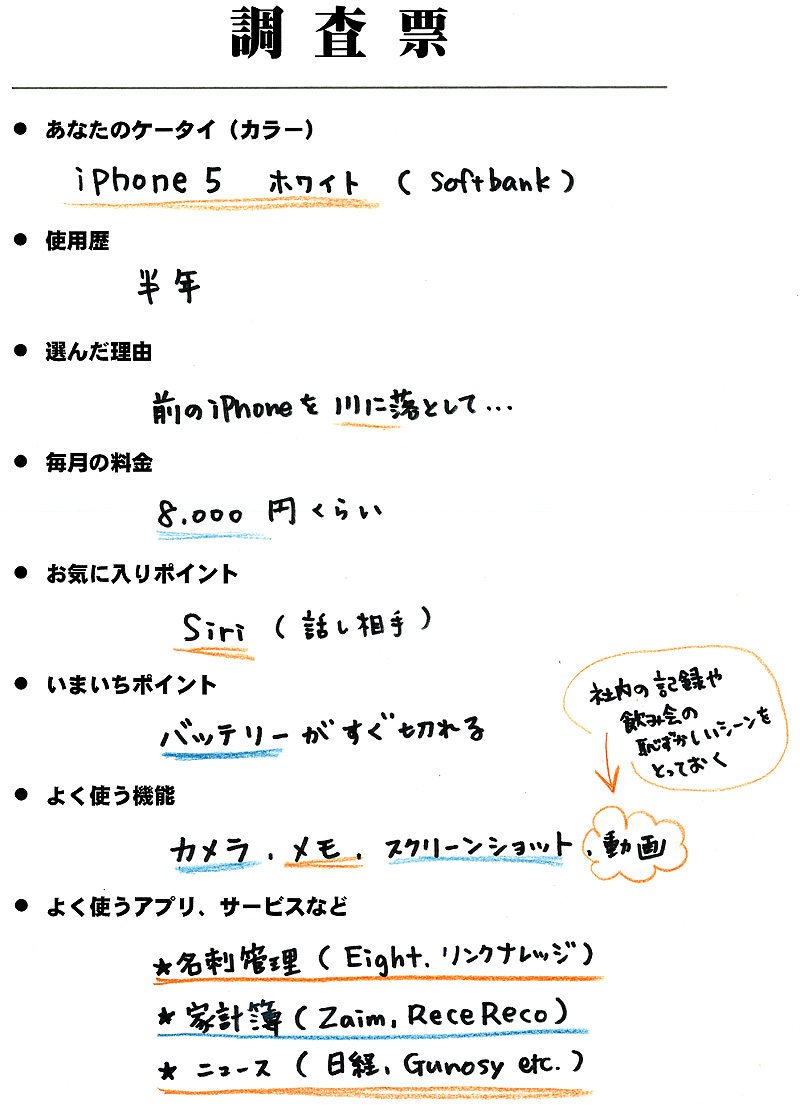 調査票
● あなたのケータイ（カラー）
iPhone 5 ホワイト (Softbank)
● 使用歴
半年
● 選んだ理由
前のiPhoneを川に落として...
● 毎月の料金
8.000 円くらい
● お気に入りポイント
Siri (話し相手)
● いまいちポイント
バッテリーがすぐ切れる
社内の記録や
飲み会の
恥ずかしいシーンを
とっておく
● よく使う機能
カメラ、メモ、スクリーンショット、動画
● よく使うアプリ、サービスなど
★名刺管理 (Eight, リンクナレッジ)
★家計簿 (Zaim, ReceReco)
★ニュース (日経, Gunosy etc.)